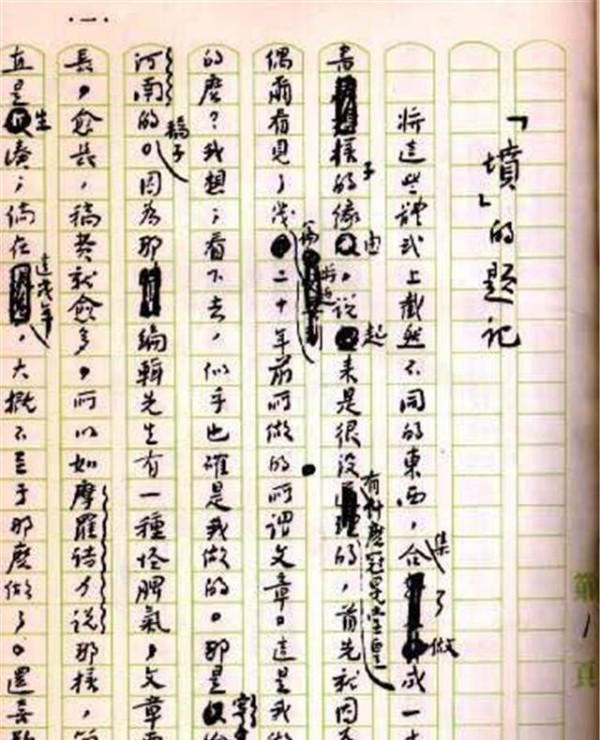 ·一·
「墳」的題記
將這些體式上截然不同的東西,合集了做成一
書樣子的緣由,說起來是很沒有什麼冠冕堂皇的,首先就因
偶爾看見了幾篇將近二十年前所做的所謂文章。這是我做
的麼?我想;看下去,似乎也確是我做的。那是寄
河南的稿子。因為那編輯先生有一種怪脾氣,文章要
長,愈長,稿費就愈多。所以如摩羅詩力說那樣,簡
直是生湊;倘在這幾年,大概不至于那麼做了。還喜
第1頁